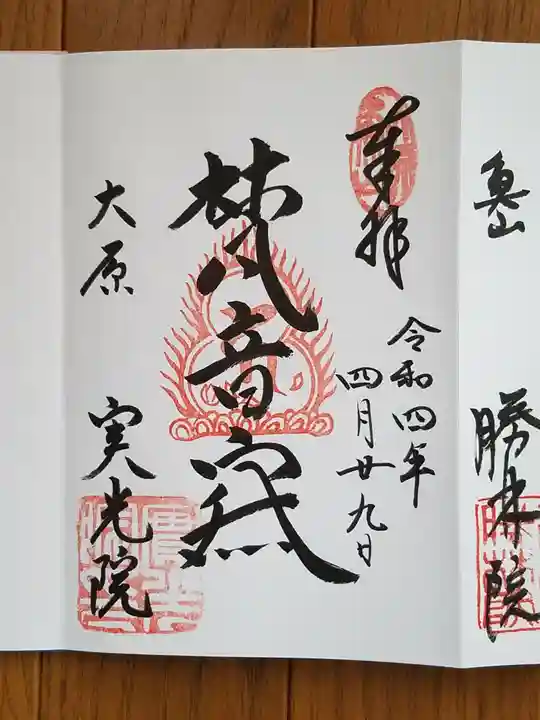 魚山
勝林院
奉拝
令和四年
四月廿九日
梵音寂
大原
実光院